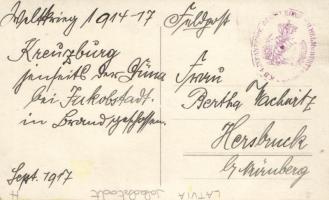 Weltkrieg 1914-17
Kreuzburg
jenseits der Düna
bei Jakobstadt.
in Brand geschossen.
Sept. 1917
Feldpost
Frau
Bertha
Hersbruck
b/ Nürnberg
LATVIA